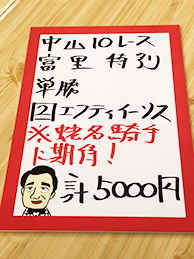 中山10レース
富里特別
単勝
2エフティイーソス
※蛯名騎手
に期待！
計5000円